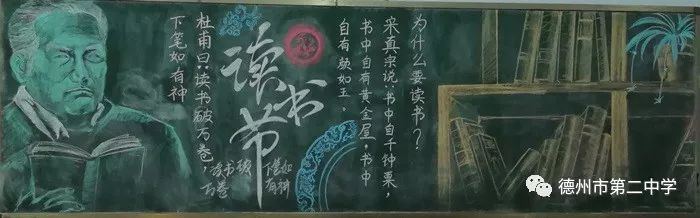 杜甫曰:读书破万卷,
下笔如有神
读书节
读书破
万卷
下笔如
有神
为什么要读书?
宋真宗说:书中自千钟粟,
书中自有黄金屋,书中
自有颜如玉,
德州市第二中学